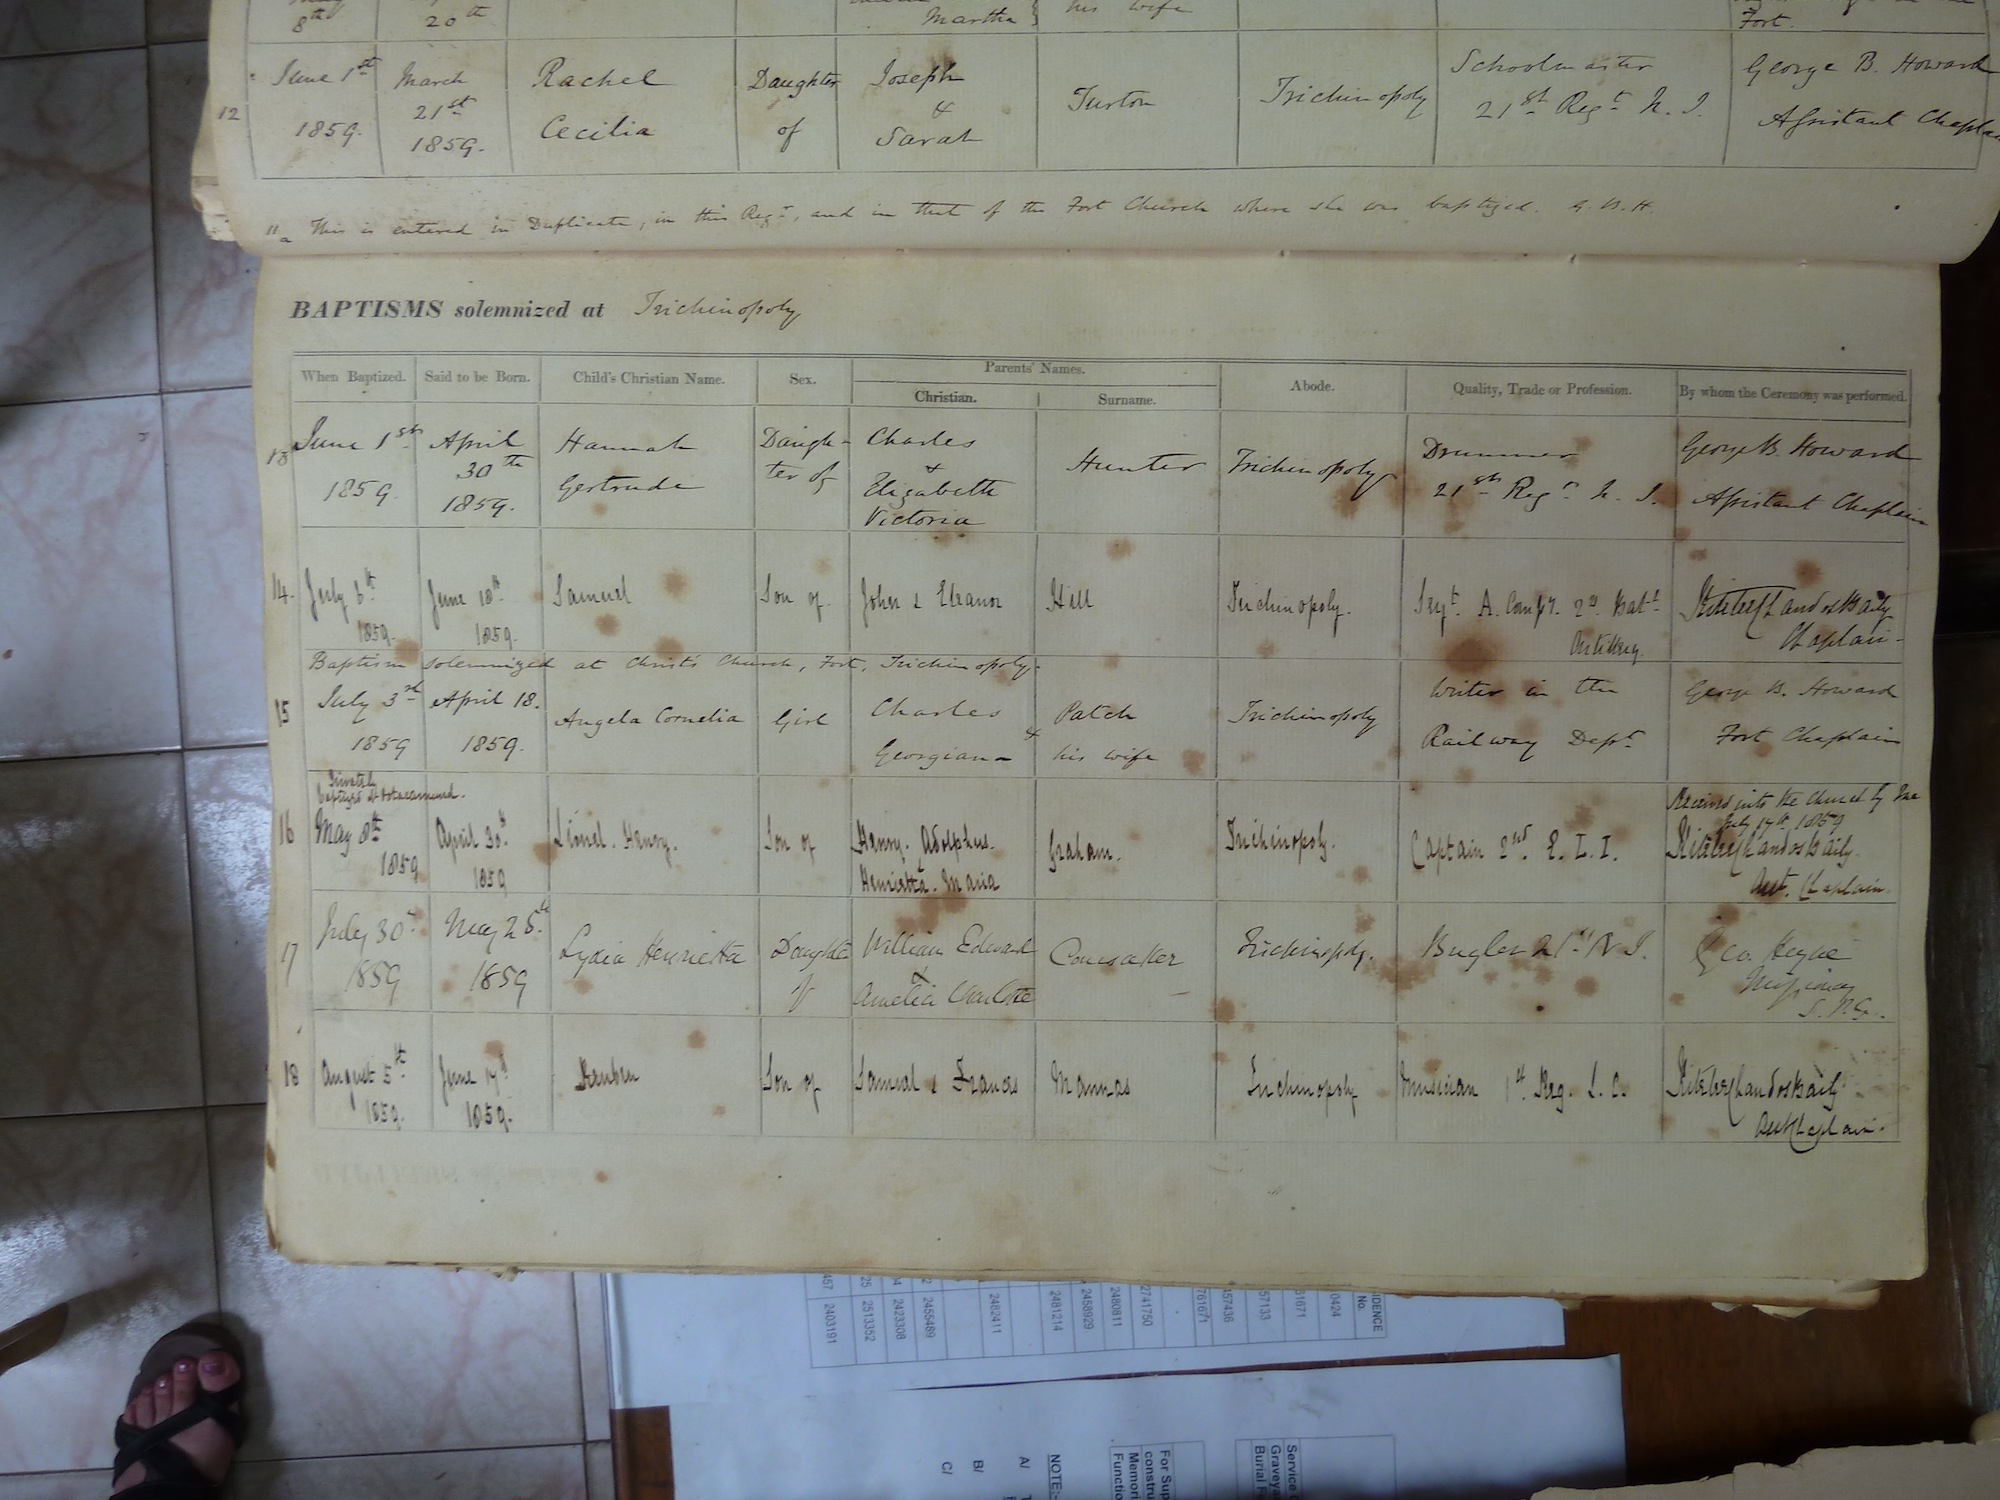 8th 20th Martha his wife Fort.
12 June 1st 1859. March 21st 1859. Rachel Cecilia Daughter of Joseph & Sarah Turton Trichinopoly Schoolmaster 21st Regt N. I. George B. Howard Assistant Chaplain
11a This is entered in Duplicate, in this Regr, and in that of the Fort Church where she was baptized. G. B. H.
BAPTISMS solemnized at Trichinopoly
When Baptized. Said to be Born. Child's Christian Name. Sex. Parents' Names. Abode. Quality, Trade or Profession. By whom the Ceremony was performed.
Christian. Surname.
13 June 1st 1859. April 30th 1859. Hannah Gertrude Daugh-ter of Charles & Elizabeth Victoria Hunter Trichinopoly Drummer 21st Regt N. I. George B. Howard Assistant Chaplain
14. July 6th 1859. June 10th 1859. Samuel Son of John & Eleanor Hill Trichinopoly. Serjt. A. Compy. 2d. Batt. Artillery. Chaplain
Baptism solemnized at Christ's Church, Fort, Trichinopoly.
15 July 3rd 1859 April 18. 1859. Angela Cornelia Girl Charles & Georgiana Patch his wife Trichinopoly Writer in the Railway Dept George B. Howard Fort Chaplain
Privately Baptized at Ootacamund.
16 May 8th 1859 April 30th 1859 Lionel. Henry. Son of Henry. Adolphus. Henrietta. Maria Graham. Trichinopoly. Captain 2nd. E. L. I. Received into the Church by me July 17th 1859 Asst. Chaplain.
17 July 30th 1859 May 25th. 1859 Lydia Henrietta Daughter of William Edward & Amelia Charlotte Trichinopoly. Bugler 21st N. I. Geo. Heyne Missionary S. P. G.
18 August 5th 1859. June 17th 1859. Reuben Son of Samuel & Frances Mannas Trichinopoly Musician 1st. Reg. L. C. Asst Chaplain.
457 2403191
25 2513352
04 2423308
2 2455489
2482411
2481214
2458929
2480811
2741750
76167/1
457436
57133
31671
0424
IDENCE No.
C/
B/
A/
NOTE:-
For Sup
constru
Memori
Functio
Service
Graveya
Burial F